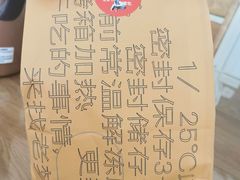 1/ 25°C
密封保存3
密封储存 更
前常温解冻
箱加热
吃的事情
来找老